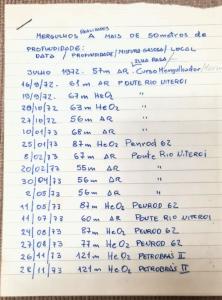 REALIZADOS
MERGULHOS A MAIS DE 50 metros de
PROFUNDIDADE:
DATA / PROFUNDIDADE / MISTURA GASOSA / LOCAL
ILHA RASA
JULHO 1972. 57m AR. Curso Mergulhador
16/9/72. 61m AR PONTE RIO NITEROI
19/9/72. 67m HeO2 "
28/10/72 63m HeO2 "
27/12/72 56m AR "
10/01/73 68m AR "
25/01/73 87m HeO2 Penrod 62
8/02/73 67m AR PONTE RIO NITEROI
20/02/73 55m AR "
30/04/73 56m AR "
2/05/73 56m AR "
11/05/73 87m HeO2 PENROD 62
11/07/73 60m AR PONTE RIO NITEROI
24/08/73 87m HeO2 PENROD 62
27/08/73 77m HeO2 PENROD 62
26/11/73 121m HeO2 PETROBRÁS II
28/11/73 121m HeO2 PETROBRÁS II